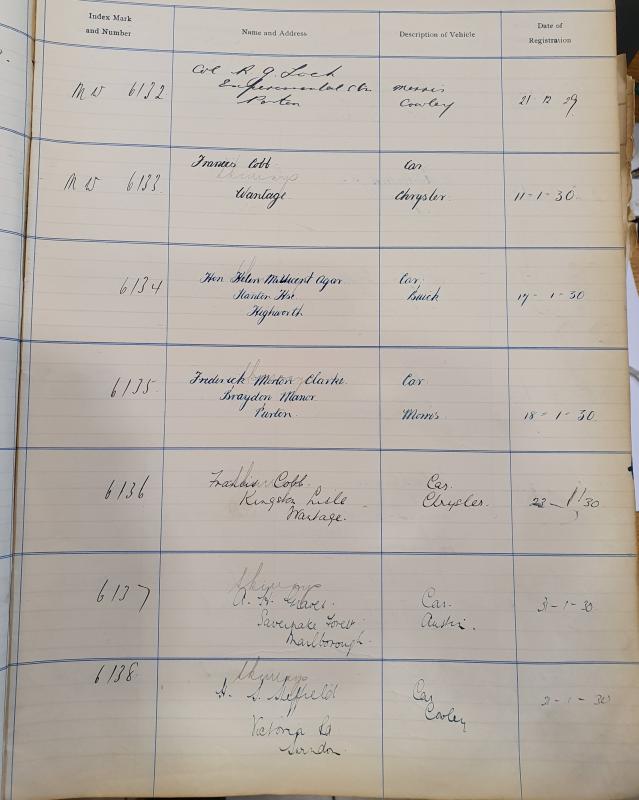 Index Mark
and Number
Name and Address
Description of Vehicle
Date of
Registration
M W 6132
Col R. G. Loch
Experimental Stn
Porton
Morris
Cowley
21 12 29
M W 6133
Francis Cobb
Wantage
Car
Chrysler
11-1-30
6134
Hon Helen Millicent Agar
Hse.
Highworth
Car
Buick
17-1-30
6135
Frederick Morton Clarke
Braydon Manor
Purton
Car
Morris
18-1-30
6136
Francis Cobb
Kingston Lisle
Wantage.
Car.
Chrysler.
23-1-30
6137
A. H.
Savernake Forest
Marlborough.
Car.
Austin.
31-1-30
6138
Victoria Rd
Swindon
Car
Cowley
31-1-30